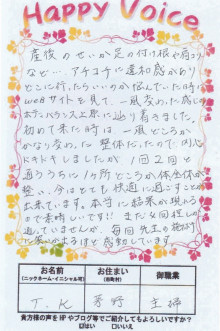 Happy Voice
産後のせいか足の付け根や肩コリ
など… アチコチに違和感があり
どこに行ったらいいのか悩んでいた時に
webサイトを見て、一風変わった感じの
ボディバランス上原に辿り着きました。
初めて来た時は一風どころか
かなり変わった整体だったので内心
ドキドキしましたが1回2回と
通ううちに1ヶ所どころか体全体が
整い、今はとても快適に過ごすことが
出来ています。本当に結果が現れる
まで素晴しいです!! まだ数回程しか
通っていませんが、毎回先生の施術
には感動しています
お名前
(ニックネーム・イニシャル可)
お住まい
(市町村)
御職業
T.K
主婦
貴方様の声をHPやブログ等でご紹介してもよろしいですか?
はい
いいえ